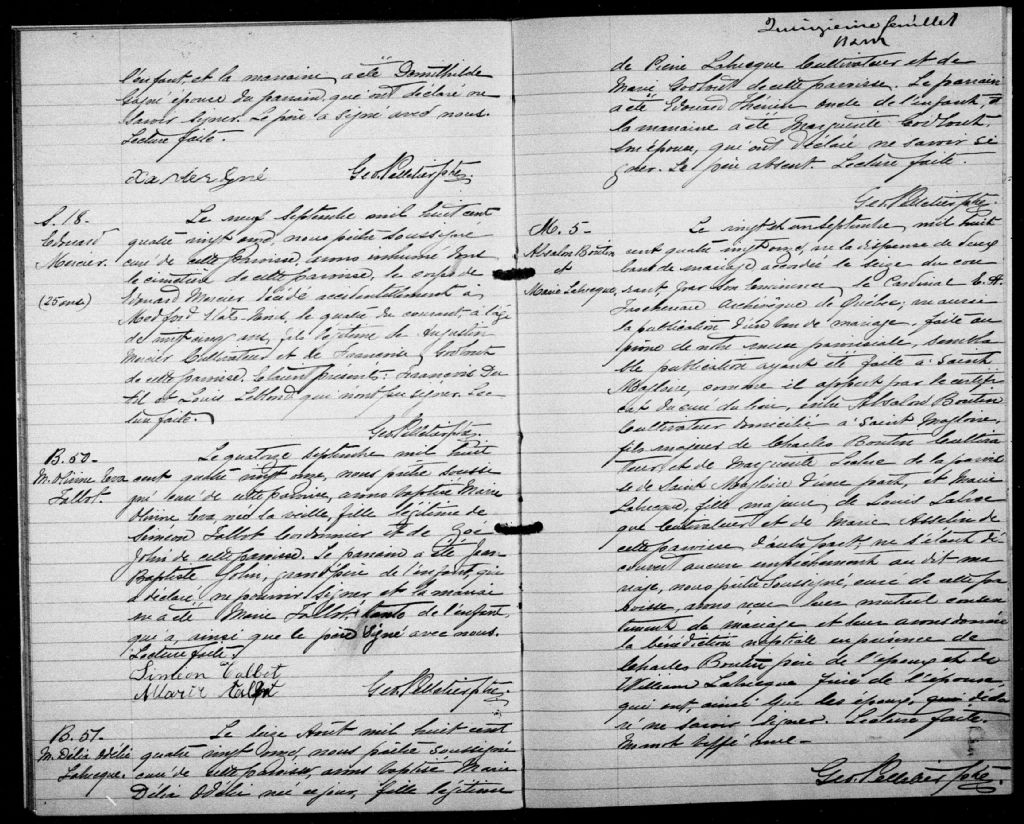 l'enfant, et la marraine a été Demithilde
Gagné épouse du parrain, qui ont déclaré ne
savoir signer. Le père a signé avec nous.
Lecture faite.
Geo. Pelletier ptre.
S. 18.
Edouard
Mercier.
(25 ans)
Le neuf Septembre mil huit cent
quatre vingt onze, nous prêtre soussigné
curé de cette paroisse, avons inhumé dans
le cimetière de cette paroisse, le corps de
Edouard Mercier décédé accidentellement à
Medford Etats-Unis, le quatre du courant, à l'âge
de vingt cinq ans, fils légitime de Augustin
Mercier Cultivateur et de Françoise
de cette paroisse. Etaient présents: François
et Louis Leblond qui n'ont pu signer. Lec
ture faite.
Geo. Pelletier ptre.
B. 50.
M. Olivine Eva
Talbot.
Le quatorze septembre mil huit
cent quatre vingt onze, nous prêtre soussi
gné curé de cette paroisse, avons baptisé Marie
Olivine Eva, née la veille, fille légitime de
Simeon Talbot Cordonnier et de Zoé
Jolin de cette paroisse. Le parrain a été Jean
Baptiste Jolin, grand père de l'enfant, qui
a déclaré ne pouvoir signer et la marrai
ne a été Marie Talbot, tante de l'enfant,
qui a, ainsi que le père signé avec nous.
Lecture faite.
Simeon Talbot
Marie Talbot
Geo. Pelletier ptre.
B. 51.
M. Délia Odélie
Labrecque.
Le seize Août mil huit cent
quatre vingt onze, nous prêtre soussigné
curé de cette paroisse, avons baptisé Marie
Délia Odélie née ce jour, fille légitime
Quinzième feuillet
de Pierre Labrecque Cultivateur et de
Marie de cette paroisse. Le parrain
a été Edouard Therrien oncle de l'enfant, et
la marraine a été Marguerite
son épouse, qui ont déclaré ne savoir si
gner. Le père absent. Lecture faite.
Geo. Pelletier ptre.
M. 5.
Absalon Boutin
et
Marie Labrecque,
Le vingt et un septembre mil huit
cent quatre vingt onze, vu la dispense de deux
bans de mariage accordée le seize du cou
rant, par son Eminence le Cardinal E. A.
Taschereau Archevêque de Québec; vu aussi
la publication d'un ban de mariage, faite au
prône de notre messe paroissiale, sembla
ble publication ayant été faite à Saint
Magloire, comme il appert par le certifi
cat du curé du lieu, entre Absalon Boutin
Cultivateur domicilié à Saint Magloire,
fils majeur de Charles Boutin Cultiva
teur et de Marguerite Leclerc de la parois
se de Saint Magloire d'une part, et Marie
Labrecque, fille majeure de Louis Labrec
que Cultivateur et de Marie Asselin de
cette paroisse d'autre part; ne s'étant dé
couvert aucun empêchement au dit ma
riage, nous prêtre soussigné curé de cette pa
roisse, avons reçu leur mutuel consen
tement de mariage et leur avons donné
la bénédiction nuptiale en présence de
Charles Boutin père de l'époux et de
William Labrecque frère de l'épouse,
qui ont, ainsi que les époux, qui décla
ré ne savoir signer. Lecture faite.
Geo. Pelletier ptre.